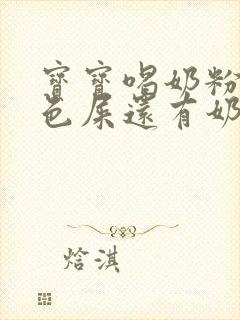 寶寶喝奶粉
色屎還有奶
焓淇